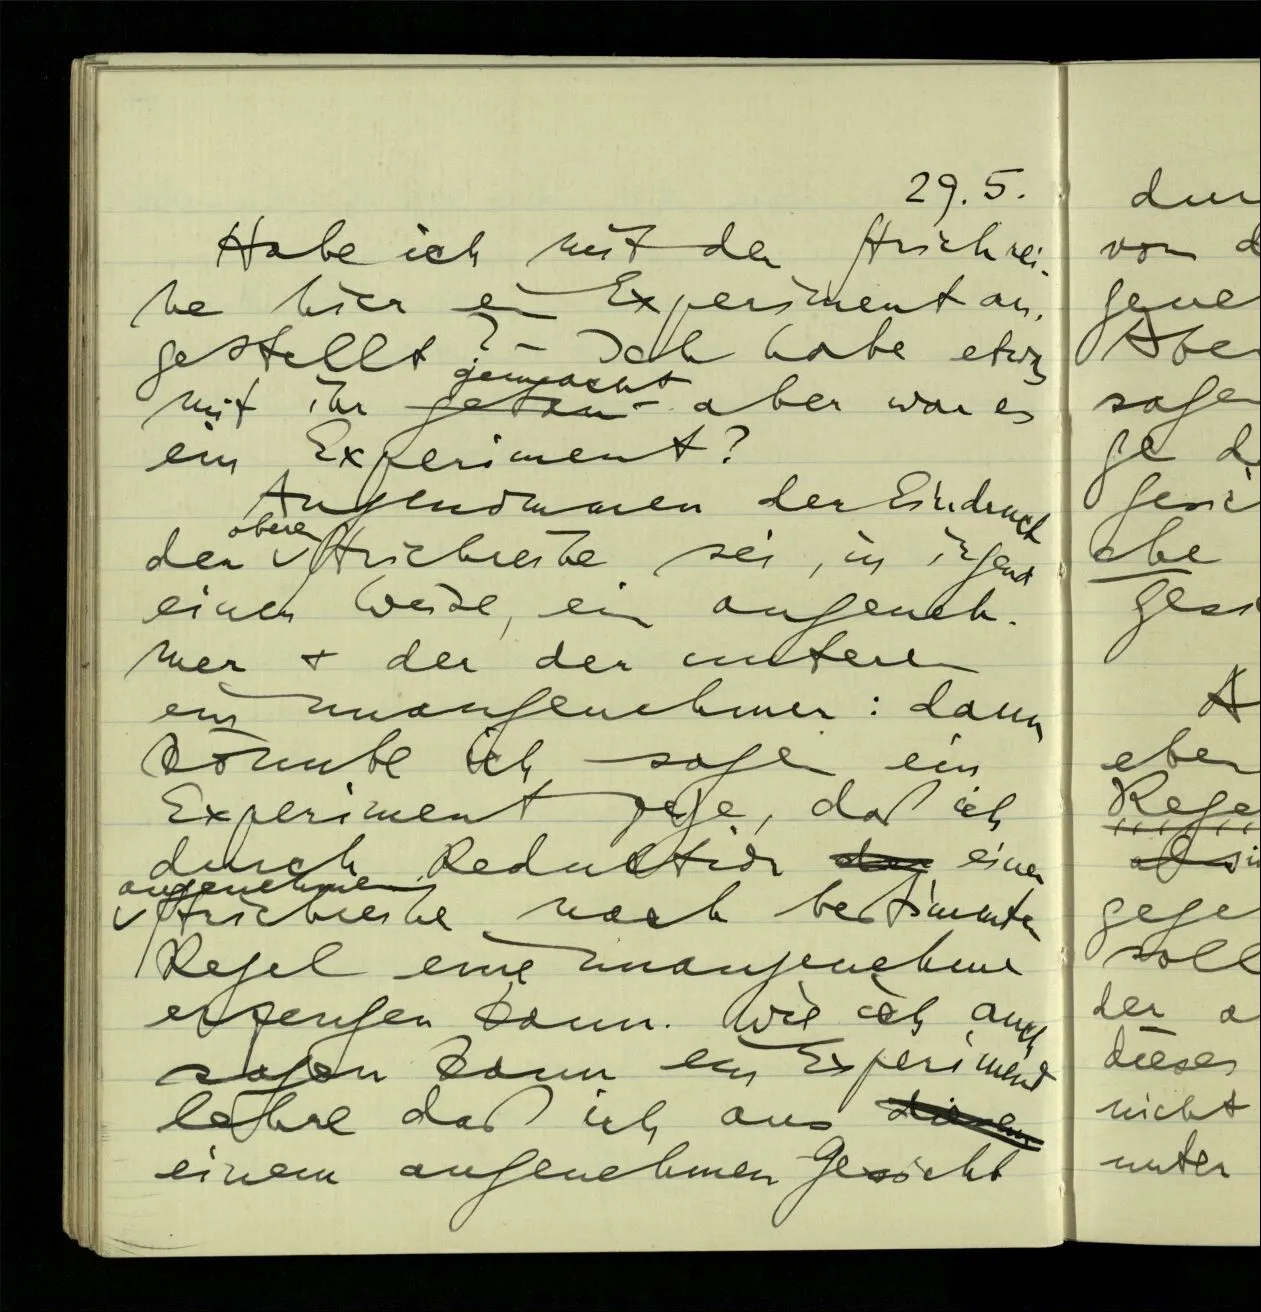 29.5.
Habe ich mit der Strichrei-
he hier ein Experiment an-
gestellt? – Ich habe etwas
gemacht
mit ihr getan – aber war es
ein Experiment?
Angenommen der Eindruck
obere
der Strichreihe sei, in irgend
einer Weise, ein angeneh-
mer + der der unteren
ein unangenehmer: dann
könnte ich sagen ein
Experiment zeige, daß ich
durch Reduktion der einer
angenehmen
Strichreihe nach bestimmter
Regel eine unangenehme
erzeugen kann. Wie ich auch
sagen kann ein Experiment
lehre daß ich aus diesem
einem angenehmen Gesicht
dur
von d
gene
Aber
sagen
ge d
gesic
che
gesi
A
eben
Rege
gege
soll
der a
dieses
nicht
unter